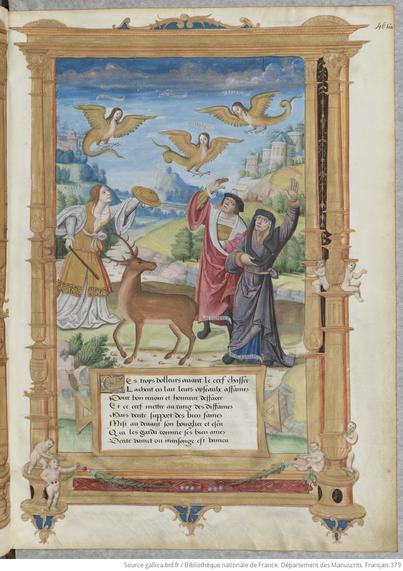 46 bis
Ces troys volleurs avant le cerf chasser
Lachent en lair leurs oyseaulx affamez
Pour bon renom et honneur deffacer
Et ce cerf mettre au rang des diffamez
Mais verite support des bien famez
Mist au devant son bouglier et escu
Qui les garda comme ses bien amez
Verite vainct ou mensonge est vaincu
Source gallica.bnf.fr / Bibliothèque nationale de France. Département des Manuscrits. Français 379